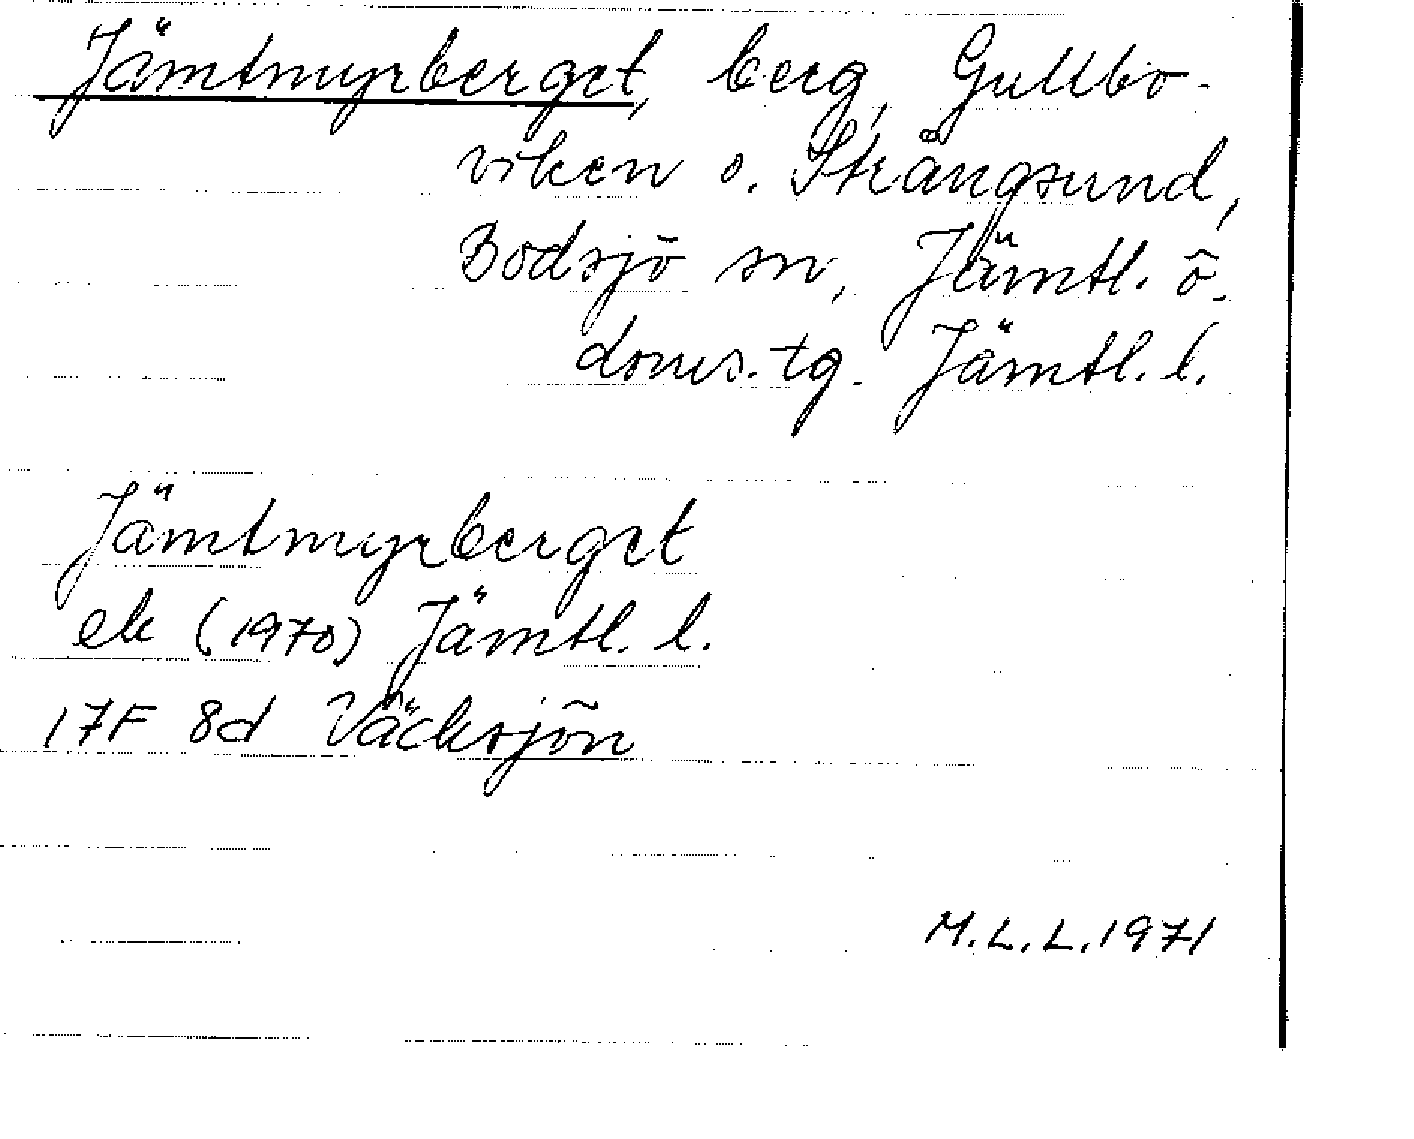 Jämtmyrberget, berg, Gullbo-
viken o. Strångsund,
Bodsjö sn, Jämtl. ö.
doms. tg. Jämtl. l.
Jämtmyrberget
ek (1970) Jämtl. l.
17F 8d Väcksjön
M.L.L. 1971